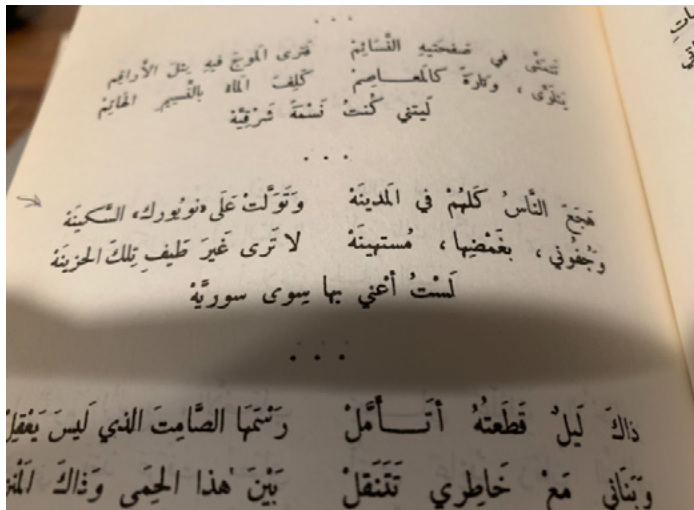 تَتَمَشَّى في صَفحَتيهِ النَّسَائِمْ فَتَرى المَوجَ فيهِ مِثلَ الأَراقِمْ
يَتَلَوَّى، وَتارةً كالمَعـــاصِمْ كَلِفَ الماءُ بالنَّسيمِ الحَائِمْ
لَيتني كُنتُ نَسْمَةً شَرْقِيَّهْ
...
هَجَعَ النَّاسُ كُلُّهُمْ في المَدينَهْ وَتَوَلَّتْ عَلَى «نويورك» السَّكينَهْ
وَجُفُوني، بغَمْضِها، مُستَهينَهْ لا تَرى غَيرَ طَيفِ تِلكَ الحزينَهْ
لَسْتُ أعْني بها سِوى سوريَّهْ
...
ذاكَ لَيلٌ قَطَعتُهُ أتَـــأمَّلْ رَسْمَهَا الصَّامِتَ الذي لَيسَ يَعْقِلْ
وَبَنَاني مَعْ خَاطِري تَتَنَقلْ بَيْنَ هٰذا الحِمَى وَذاكَ